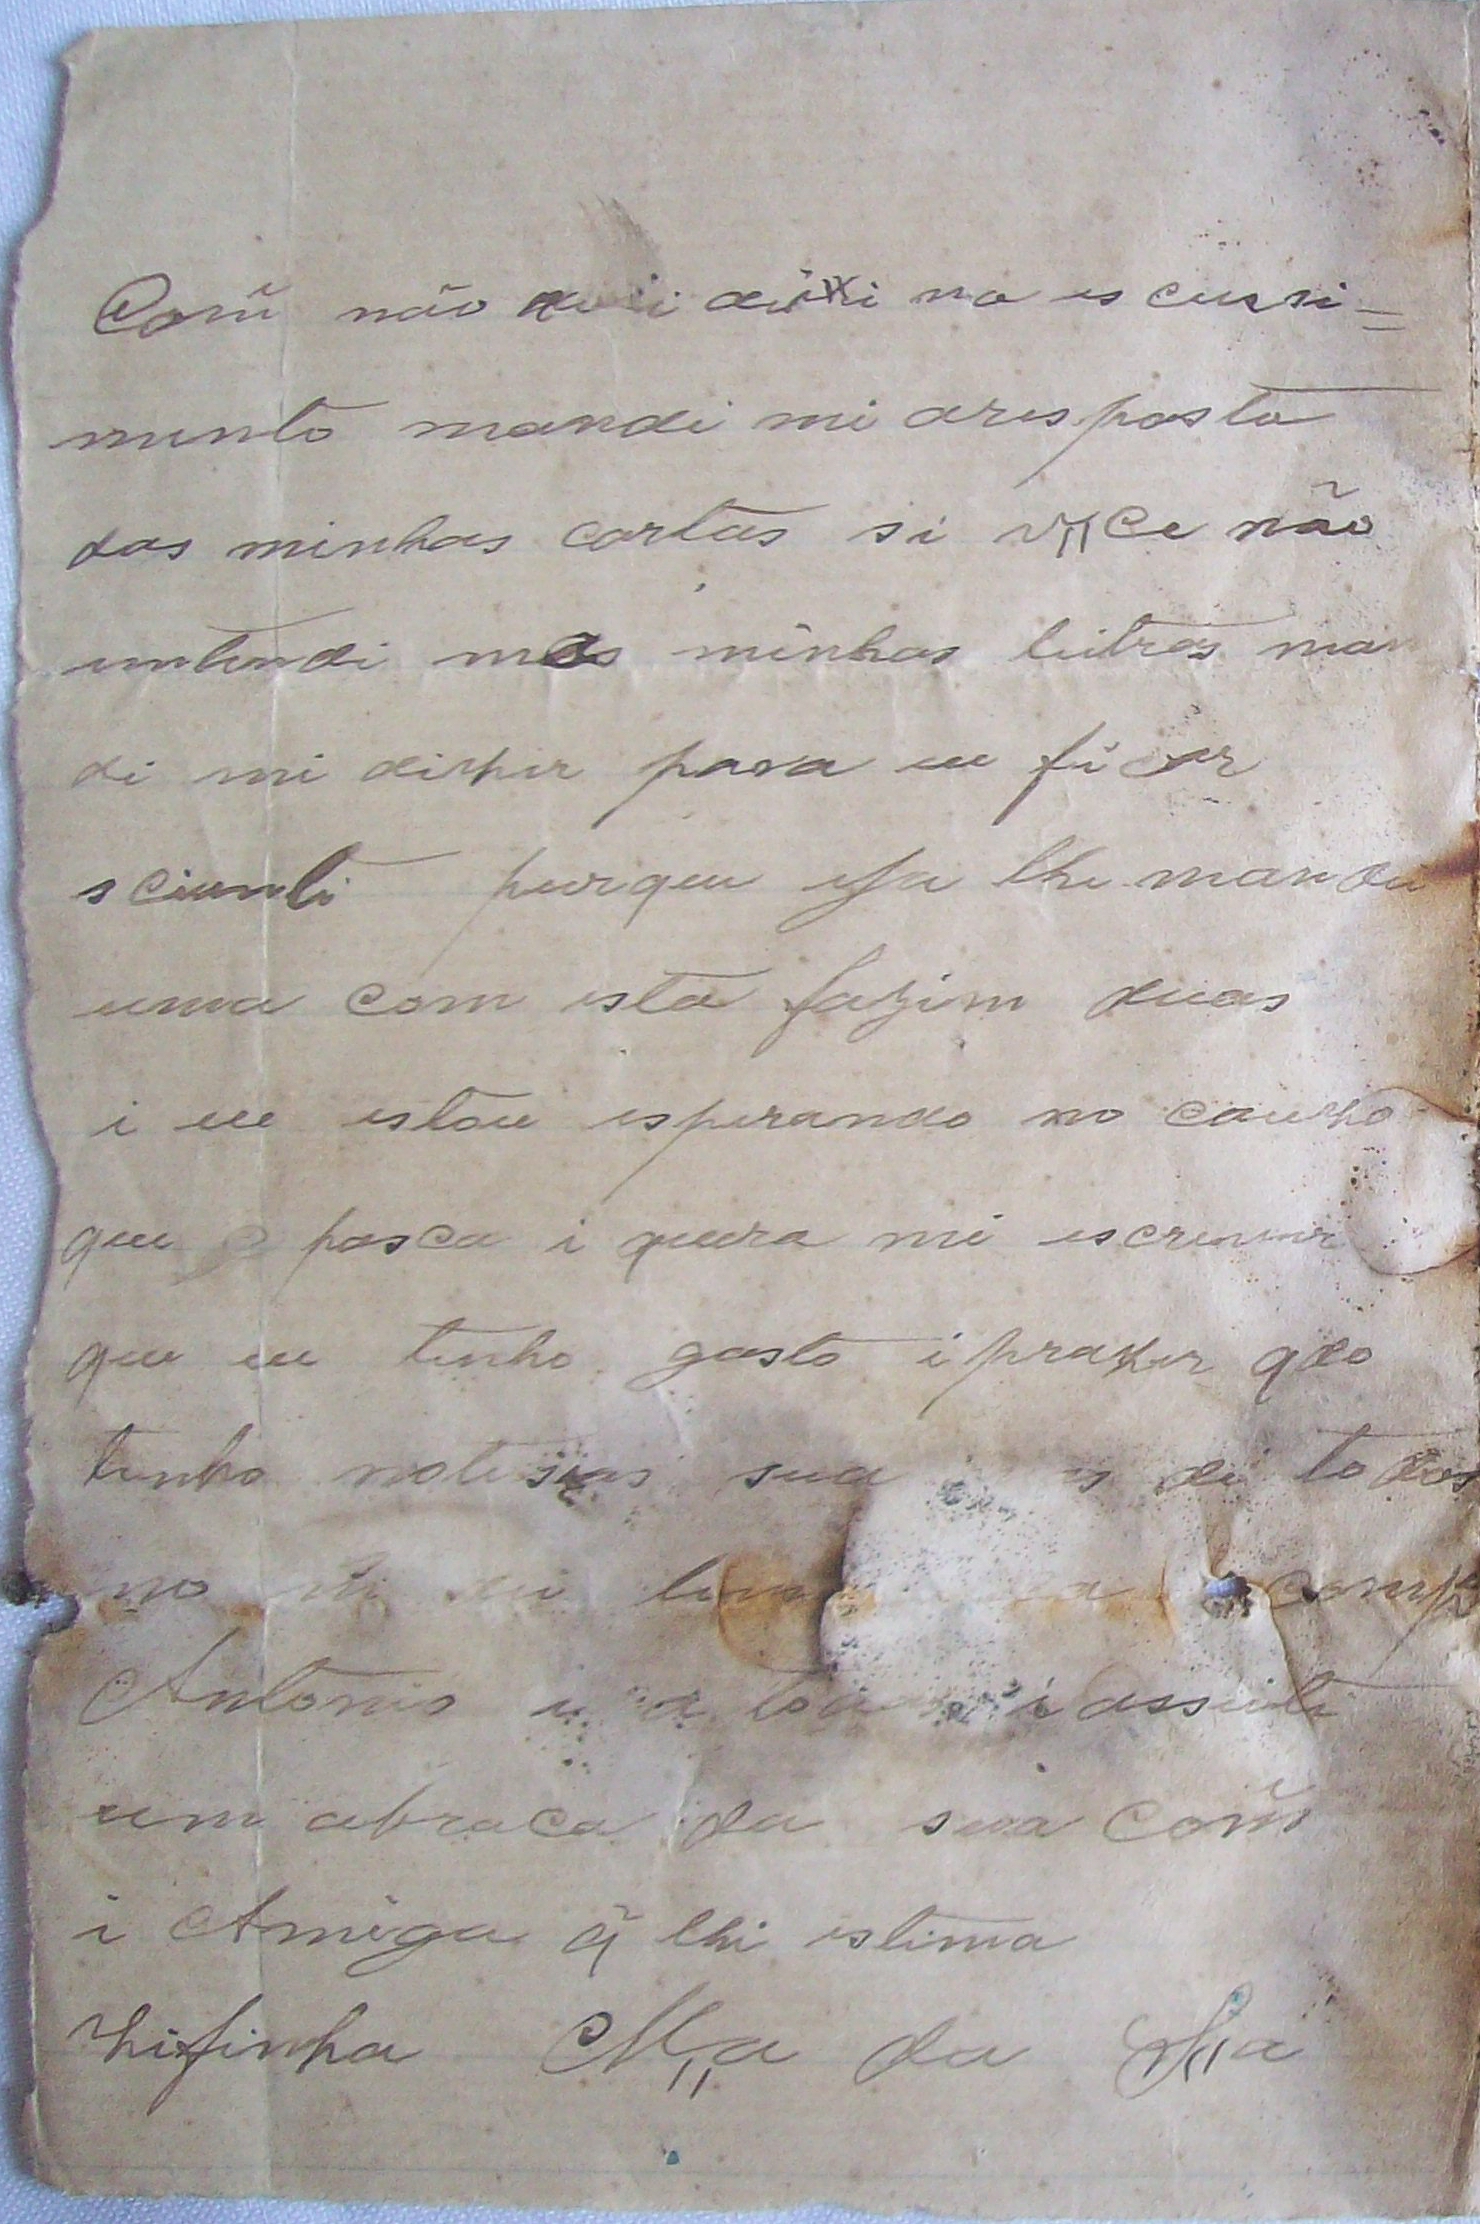 Com̃ não deixi no escussi=
mento mandi mi aresposta
das minhas cartas si vce não
entendi mas minhas leitras man
di mi dizher para eu ficar
scienti purque eja lhe mandei
uma com esta fazim duas
i eu estou esperando no couzho
que pasca i quera mi escrever
que eu tenho gosto i prazher qdo
tenho notisias sua di todos
no di lem comp
Antonio a i asseiti
um abraca da sua Com̃
i Amiga q̃ lhi estima
Zhifinha Ma da Sa